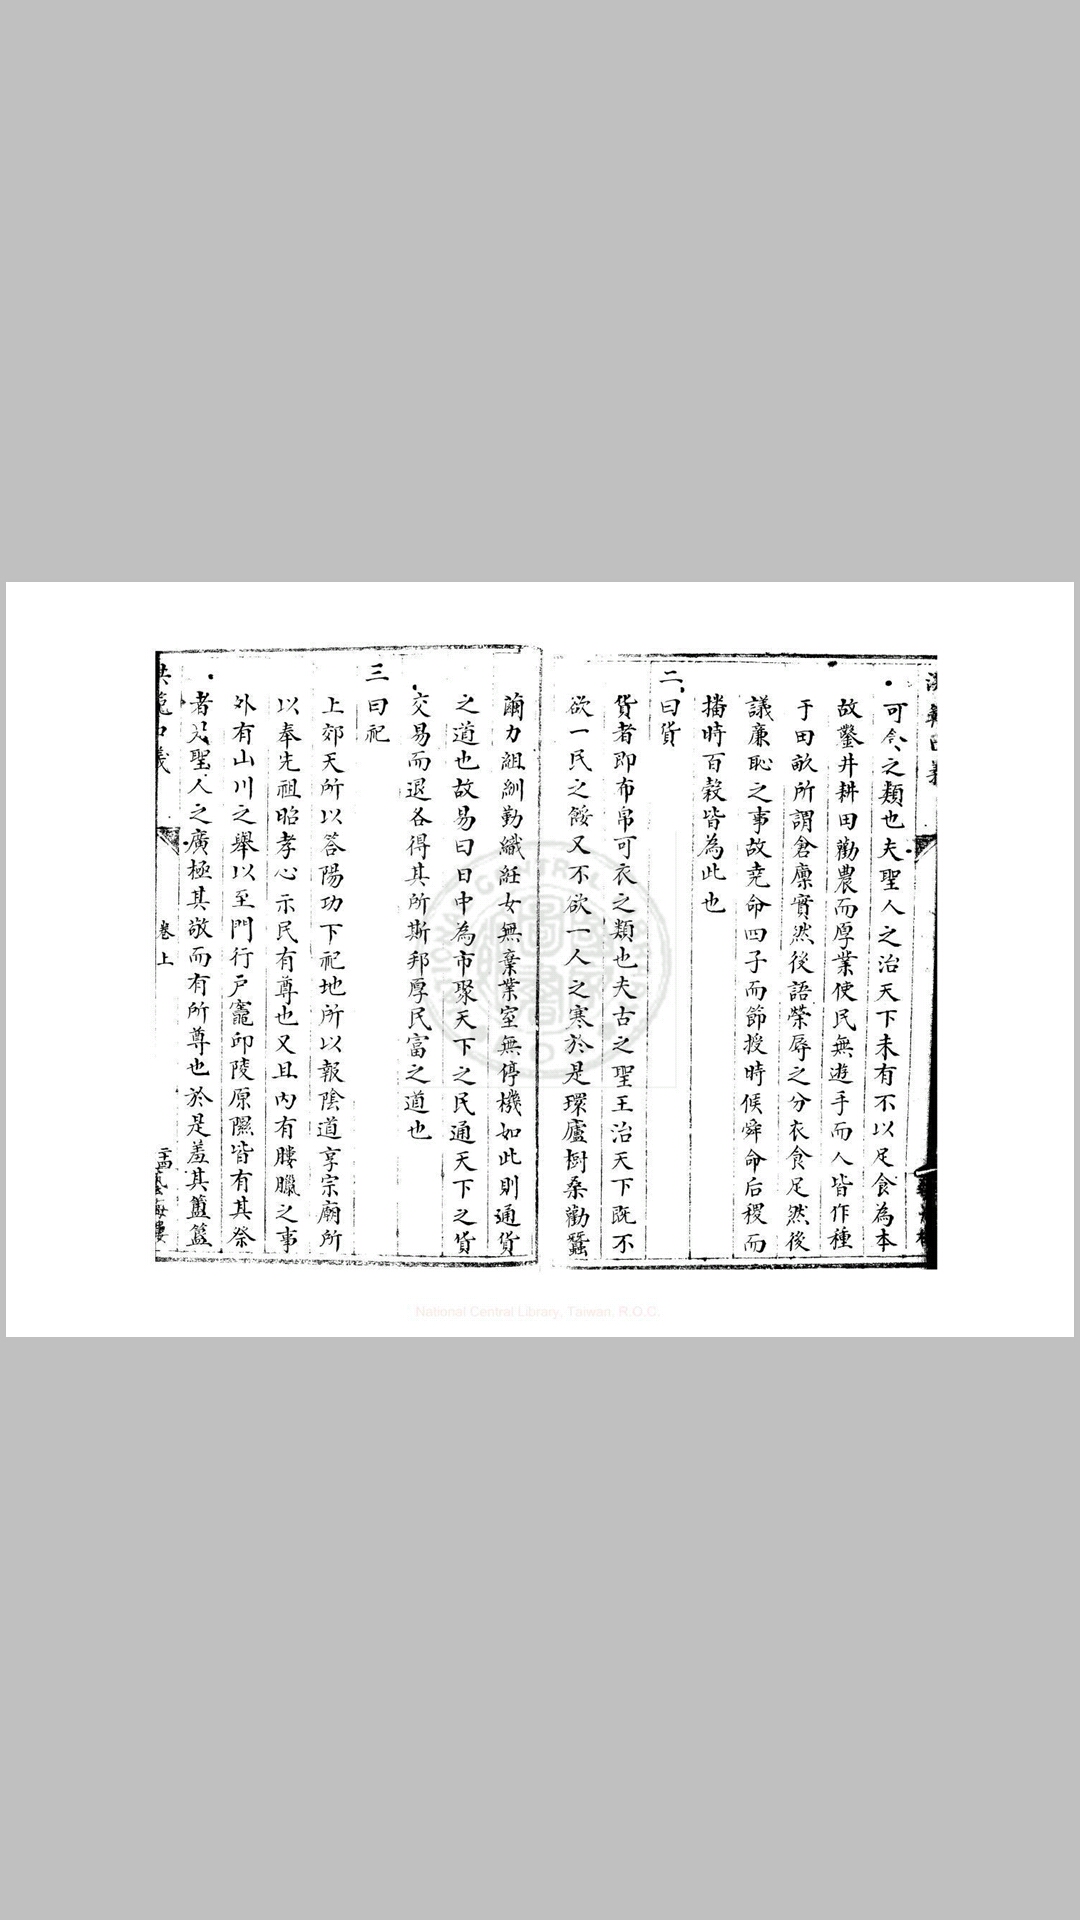 可食之類也夫聖人之治天下未有不以足食為本
故鑿井耕田勸農而厚業使民無遊手而人皆作種
于田畝所謂倉廩實然後語榮辱之分衣食足然後
議廉恥之事故堯命四子而節授時候舜命后稷而
播時百穀皆為此也
二曰貨
貨者即布帛可衣之類也夫古之聖王治天下既不
欲一民之餒又不欲一人之寒於是環廬樹桑勸蠶
繭力組紃勤織紝女無棄業室無停機如此則通貨
之道也故易曰日中為市聚天下之民通天下之貨
交易而退各得其所斯邦厚民富之道也
三曰祀
上郊天所以答陽功下祀地所以報陰道享宗廟所
以奉先祖昭孝心示民有尊也又且內有膢臘之事
外有山川之舉以至門行戶竈邱陵原隰皆有其祭
者見聖人之廣極其敬而有所尊也於是羞其簠簋
洪範口義
卷上
National Central Library, Taiwan, R.O.C.